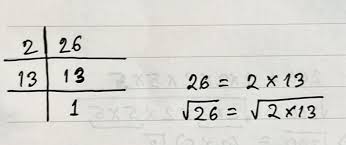 2 | 26
13 | 13
1
26 = 2 × 13
√26 = √2×13